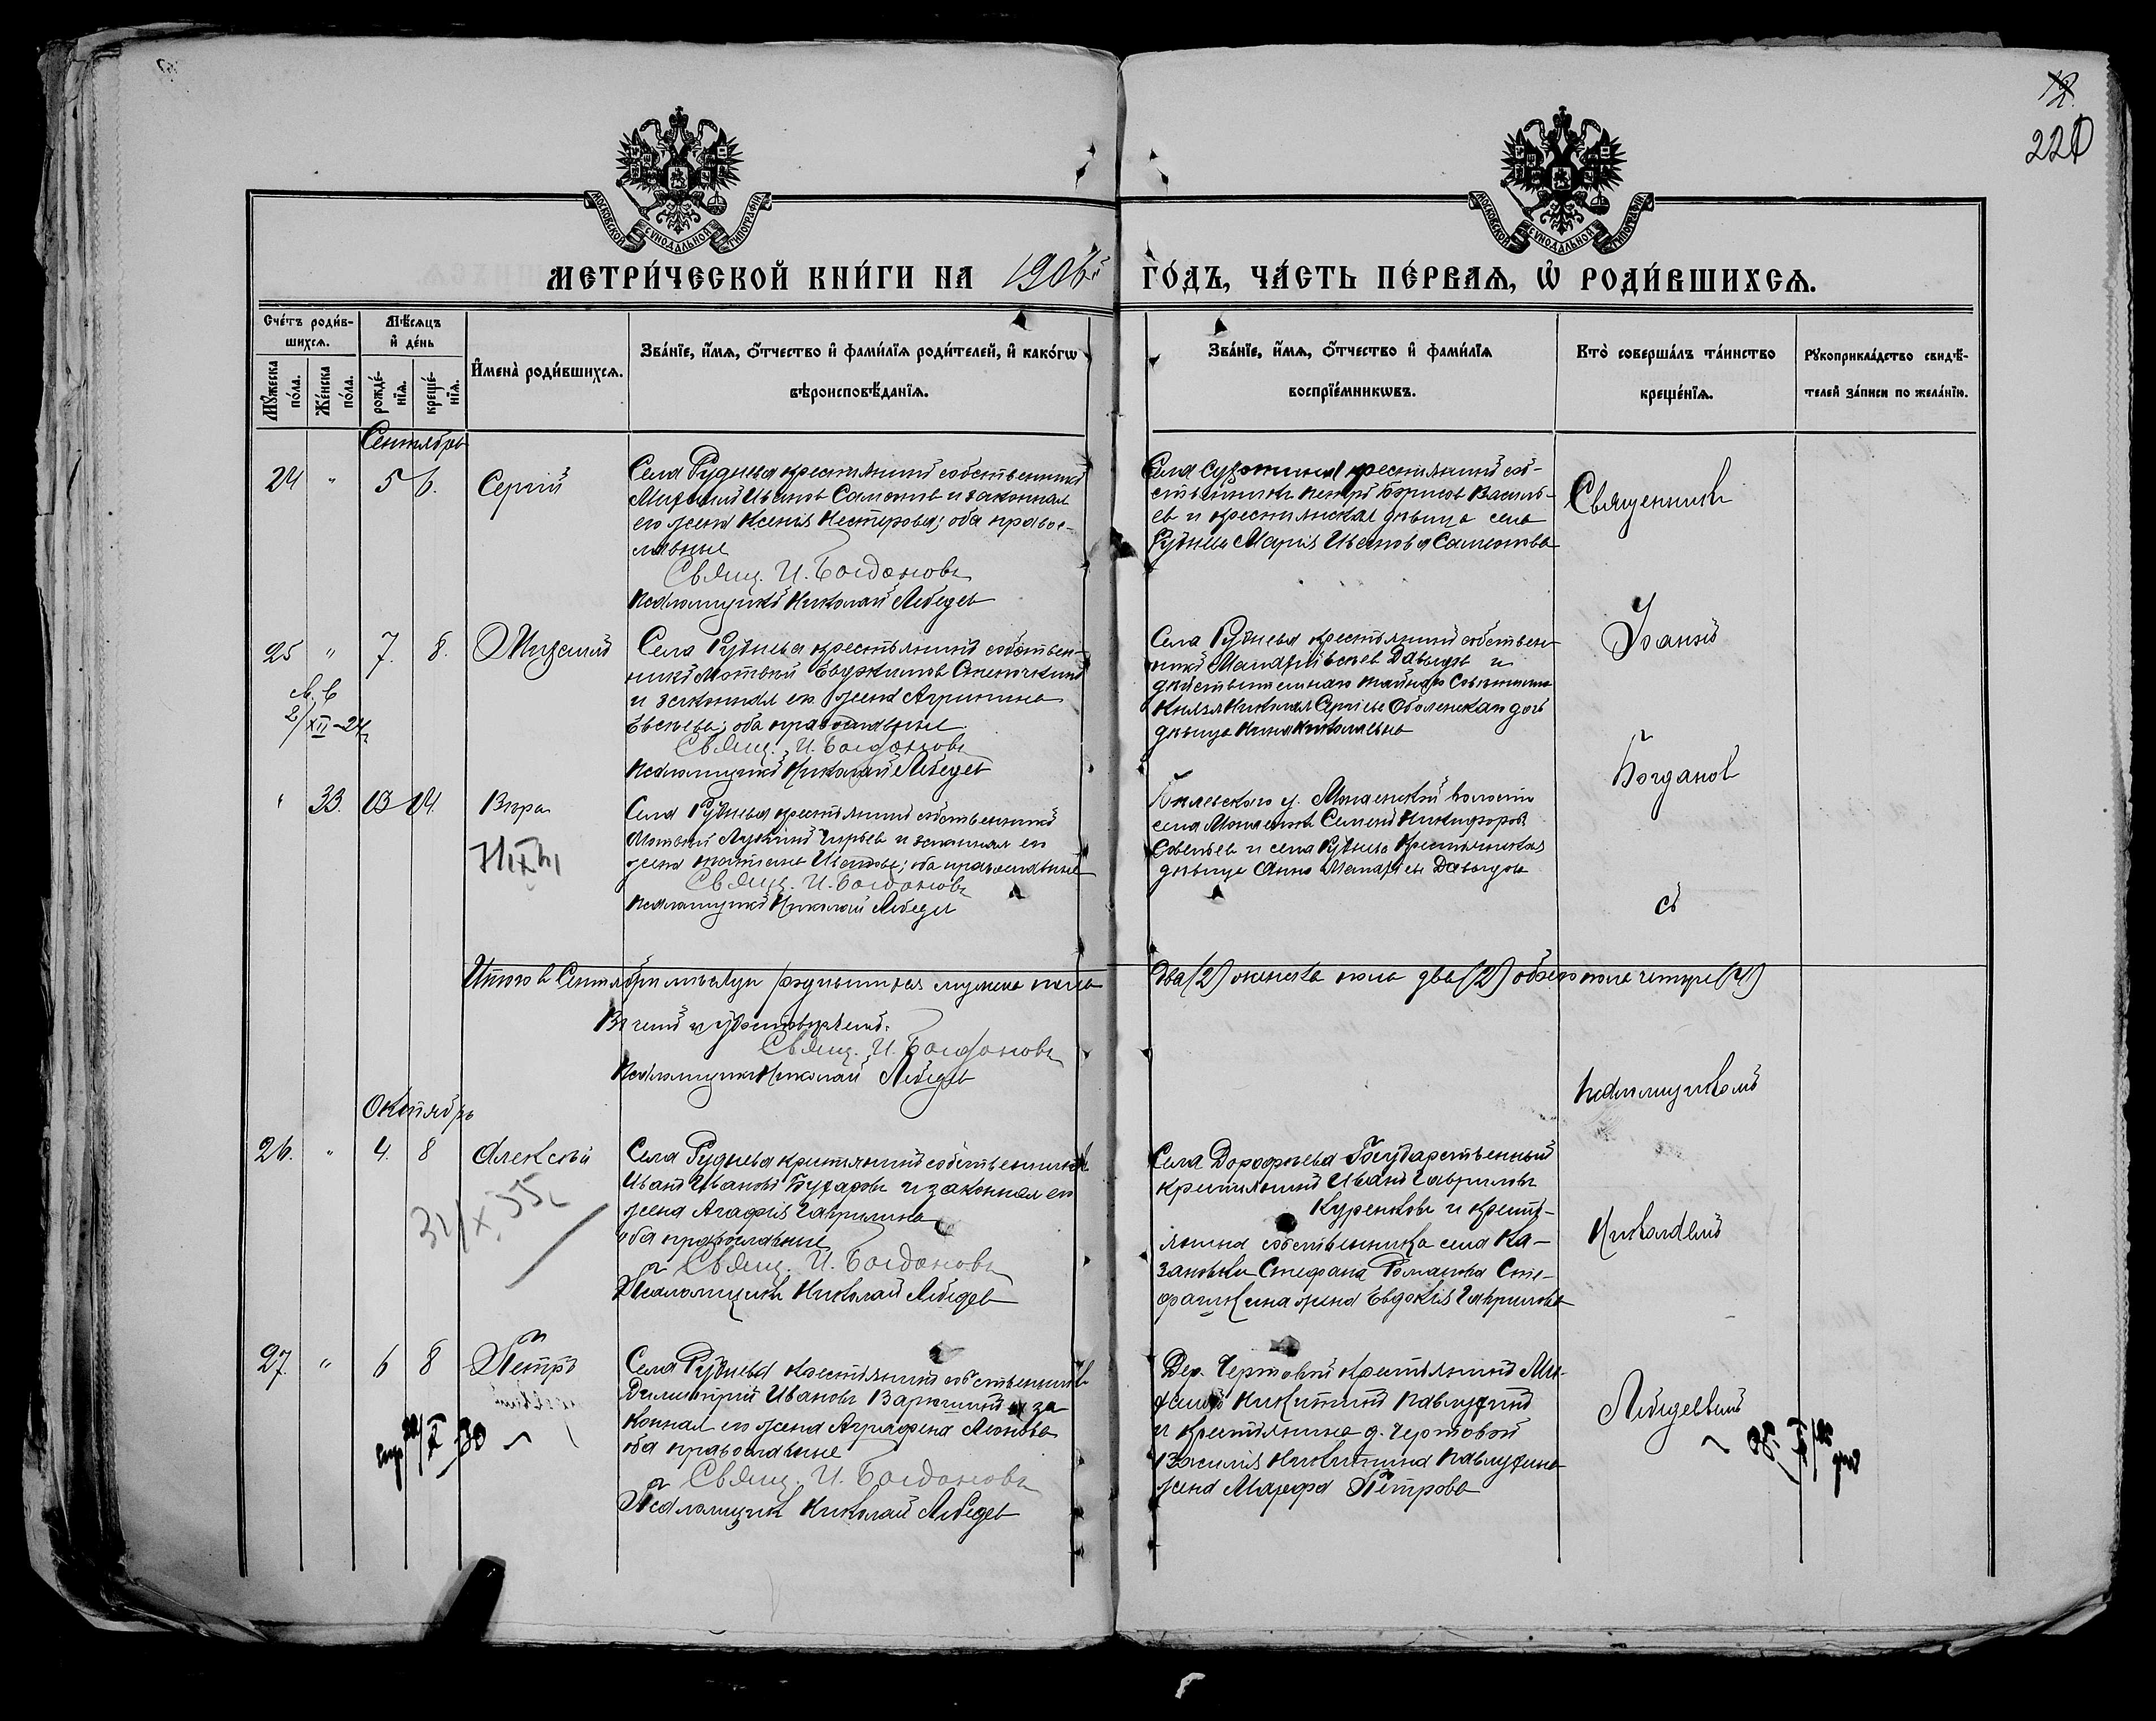 12.
220
МОСКОВСКОЙ СѴНОДАЛЬНОЙ ТИПОГРАФІИ
МОСКОВСКОЙ СѴНОДАЛЬНОЙ ТИПОГРАФІИ
МЕТРИ́ЧЕСКОЙ КНИ́ГИ НА 1906й ГО́ДЪ, ЧА́СТЬ ПЕ́РВАЯ, Ѡ҆ РОДИ́ВШИХСЯ.
Сче́тъ роди́в-
шихся.
Мꙋ́жеска по́ла.
Же́нска по́ла.
Мѣ́сяцъ
и҆ де́нь
рожде́-
нїѧ.
креще́-
нїѧ.
И҆мена̀ роди́вшихсѧ.
Зва́нїе, и҆́мѧ, ѻ҆́тчество и҆ фами́лїѧ роди́телей, и҆ како́гѡ
вѣроисповѣ́данїѧ.
Зва́нїе, и҆́мѧ, ѻ҆́тчество и҆ фами́лїѧ
воспрїе́мникѡвъ.
Кто̀ соверша́лъ та́инство
креще́нїѧ.
Рꙋкоприкла́дство свидѣ́-
телей за́писи по жела́нїю.
Сентябрь
24 " 5 6. Сергій
Села Руднева крестьянинъ собственникъ
Михаилъ Ивановъ Самоновъ и законная
его жена Ксенія Нестерова; оба правос-
лавные
Свящ. И. Богдановъ
Псаломщикъ Николай Лебедев
крестьянинъ соб-
ственникъ Петръ Борисов Василь-
ев и крестьянская девица села
Руднева Марія Иванова Самонова
Священникъ
25 " 7. 8. Михаилъ
2/XII-24
Села Руднева крестьянинъ собствен-
никъ Матвей Евдокимов
и законная его жена Агрипина
Евсеева; оба православные
Свящ. И. Богдановъ
Псаломщикъ Николай Лебедев
Села Руднева крестьянинъ собствен-
никъ Давыдов и
действительнаго тайнаго Советника
Князя Николая Сергеева Оболенскаго дочь
девица Нина Николаевна
Іоаннъ
Богданов
" 33. 13 14. Вера
Села Руднева крестьянинъ собственникъ
Матвей и законная его
жена Иванова; оба православные
Свящ. И. Богдановъ
Псаломщикъ Николай Лебедев
Белевскаго у. волости
села Семенъ Никифоров
Савельев и села Руднева Крестьянская
девица Анна Давыдова
съ
Итого в Сентябре месяце родившихся мужеска пола два (2) женска пола два (2) обоего пола четыре (4)
Свящ. И. Богдановъ
Псаломщикъ Николай Лебедев
псаломщикомъ
Октябрь
26. " 4. 8 Алексей
31/X 55
Села Руднева крестьянинъ собственникъ
Иванъ Ивановъ Бухаров и законная его
жена Агафія Гаврилина
оба православные
Свящ. И. Богдановъ
Псаломщикъ Николай Лебедев
Села Дорофеева Государственный
крестьянинъ Иванъ Гавриловъ
Куренковъ и кресть-
янина собственника села Ка-
зановки Стефана Романова Сте-
фанишина жена Евдокія Гаврилова
Николаемъ
27. " 6 8 Петръ
Села Руднева крестьянинъ собственникъ
Димитрій Ивановъ Варюшинъ и за-
конная его жена Агрифена Леонова
оба православные
Свящ. И. Богдановъ
Псаломщик Николай Лебедев
Дер. Чертовой крестьянинъ Ми-
хаилъ Никитинъ Павлухинъ
и крестьянина д. Чертовой
Василія Никитина Павлухина
жена Марфа Петрова
Лебедевымъ